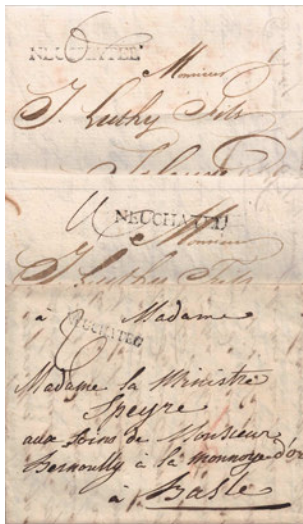 NEUCHATEL
Monsieur
J. Luthy Fils
NEUCHATEL
Monsieur
J. Luthy Fils
à Madame
NEUCHATEL
Madame la Ministre
Speyre
aux soins de Monsieur
Bernoully à la monnoye d'or
à Basle